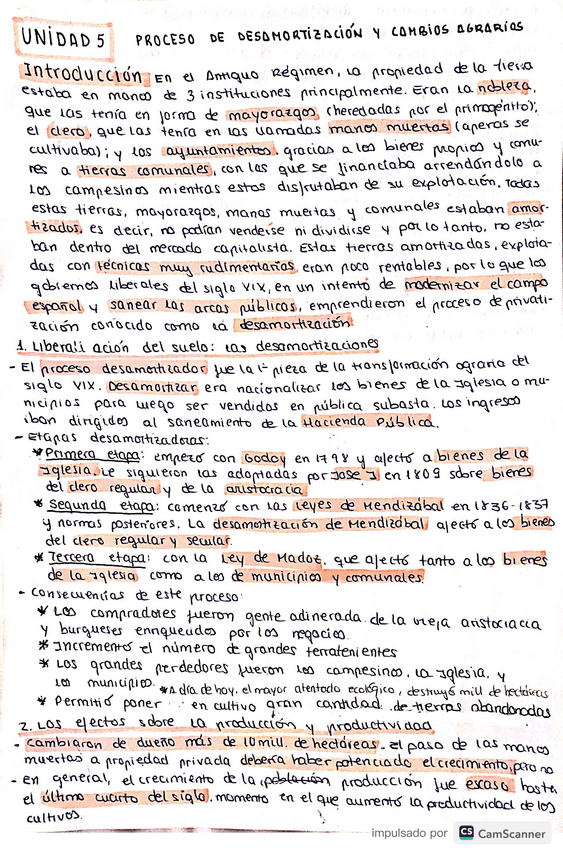 UNIDAD 5 PROCESO DE DESAMORTIZACIÓN Y CAMBIOS AGRARIOS
Introducción En el Antiguo Régimen, la propiedad de la tierra
estaba en manos de 3 instituciones principalmente. Eran la nobleza,
que las tenía en forma de mayorazgos (heredadas por el primogénito);
el clero, que las tenía en las llamadas manos muertas (apenas se
cultivaba); y los ayuntamientos, gracias a los bienes propios y comu-
res a tierras comunales, con las que se financiaba arrendándolo a
los campesinos mientras estos disfrutaban de su explotación. Todas
estas tierras, mayorazgos, manos muertas y comunales estaban amor-
tizados, es decir, no podían venderse ni dividirse y por lo tanto, no esta-
ban dentro del mercado capitalista. Estas tierras amortizadas, explota-
das con técnicas muy rudimentarias, eran poco rentables, por lo que los
gobiernos liberales del siglo VIX, en un intento de modernizar el campo
español y sanear las arcas públicas, emprendieron el proceso de privati-
zación conocido como la desamortización
1. Liberali ación del suelo: las desamortizaciones
- El proceso desamortizador fue la 1ª pieza de la transformación agraria del
siglo VIX. Desamortizar era nacionalizar los bienes de la Iglesia o mu-
nicipios para luego ser vendidos en pública subasta. Los ingresos
iban dirigidos al saneamiento de la Hacienda Pública.
- Etapas desamortizadoras:
* Primera etapa: empezó con Godoy en 1798 y afectó a bienes de la
Iglesia. Le siguieron las adoptadas por José I en 1809 sobre bienes
del clero regular y de la aristocracia
* Segunda etapa: comenzó con las Leyes de Mendizábal en 1836-1837
y normas posteriores. La desamortización de Mendizábal afectó a los bienes
del clero regular y secular.
* Tercera etapa: con la Ley de Madoz, que afectó tanto a los bienes
de la Iglesia como a los de municipios y comunales.
- Consecuencias de este proceso:
* Los compradores fueron gente adinerada de la vieja aristocracia
y burgueses enriquecidos por los negocios.
* Incrementó el número de grandes terratenientes
* Los grandes perdedores fueron los campesinos, la Iglesia, y
los municipios. * A día de hoy, el mayor atentado ecológico, destruyó mill de hectáreas
* Permitió poner en cultivo gran cantidad de tierras abandonadas
2. Los efectos sobre la producción y productividad
- Cambiaron de dueño más de 10 mill. de hectáreas. El paso de las manos
muertas a propiedad privada debería haber potenciado el crecimiento, pero no
- en general, el crecimiento de la población producción fue escaso hasta
el último cuarto del siglo, momento en el que aumentó la productividad de los
cultivos.
impulsado por CS CamScanner